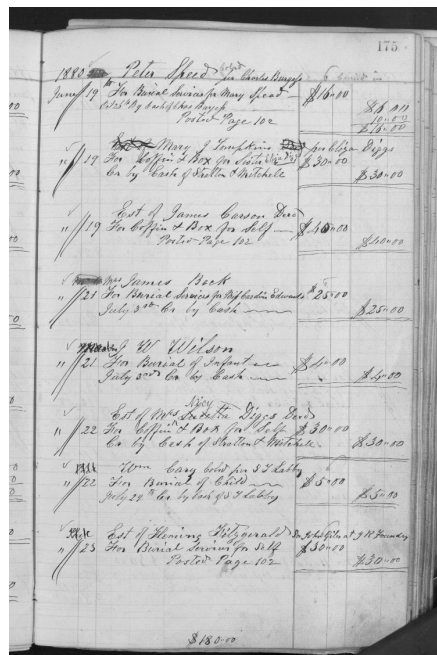 175
1880 Peter Speed Cold per Charles Burgess
June 19th For Burial Services for Mary Speed $16.00
by Cash of Chas Burgess $6.00
Posted Page 102 10.00
$16.00
Mary J Tompkins per Eliza Diggs
" 19 For Coffin & Box for Sister $30.00
Cr by Cash of Stratton & Mitchele $30.00
Est of James Carson Decd
" 19 For Coffin & Box for Self $40.00
Posted Page 102 $40.00
Mrs James Bock
" 21 For Burial Services for Edwards $25.00
July 3rd Cr by Cash $25.00
J W Wilson
" 21 For Burial of Infant $4.00
July 3rd Cr by Cash $4.00
Est of Mrs Diggs Decd
" 22 For Coffin & Box for Self $30.00
Cr by Cash of Stratton & Mitchele $30.00
Wm Cary Cold per S T Labby
" 22 For Burial of Child $5.00
July 29th Cr by Cash of S T Labby $5.00
Est of Fleming Fitzgerald
" 23 For Burial Services for Self $30.00
Posted Page 102 $30.00
$180.00